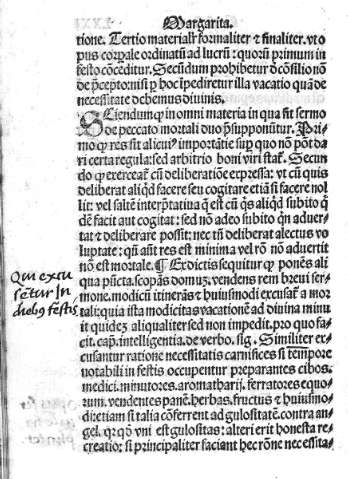 Margarita.
tione. Tertio materialr̃ formaliter ⁊ finaliter. vt o
pus corꝑale ordinatũ ad lucrũ: quorũ primum in
festo cõceditur. Secũdum prohibetur
de p̃ceptо
necessitate debemus diuinis.
SCiendum qͥ in omni materia in qua fit sermo
de peccato mortali duo p̃supponũtur. Pri
mo qͥ res sit alicuiꝰ importãtie suꝑ quo nõ põt da
ri certa regula: sed arbitrio boni viri stat̃. Secun
do qͥ exerceat̃ cũ deliberatiõe expressa: vt cũ quis
deliberat aliqͥd facere seu cogitare etiã si facere nol
lit: vel saltẽ interp̃tatiua q̃ est cũ qͥs aliqͥd subito q
dẽ facit aut cogitat: sed nõ adeo subito qͥn aduer
tat ⁊ deliberare possit: nec tñ deliberat alectus vo
luptate: qñ aũt res est minima vel rõ nõ aduertit
nõ est mortale. ¶ Ex dictis sequitur qͥ ponẽs ali
qua pũcta. scopãs domũ. vendens rem breui ser-
mone. modicũ itinerãs ⁊ huiusmodi excusat̃ a mor
tali: quia ista modicitas vacationẽ ad diuina minu
it quidẽ aliqualiter sed non impedit. pro quo fa-
cit. cap. intelligentia. de verbo. sig. Similiter ex-
cusantur ratione necessitatis carnifices si tẽpore
notabili in festis occupentur preparantes cibos.
medici. minutores. aromatharij. ferratores equo-
rum. vendentes panẽ. herbas. fructus ⁊ huiusmo-
di: etiam si talia cõferrent ad gulositatẽ. contra an-
gel. qr qͩ vni est gulositas: alteri erit honesta re-
creatio: si principaliter faciant hec rõne necessita-
Qui excu
sẽtur In
diebꝰ festis